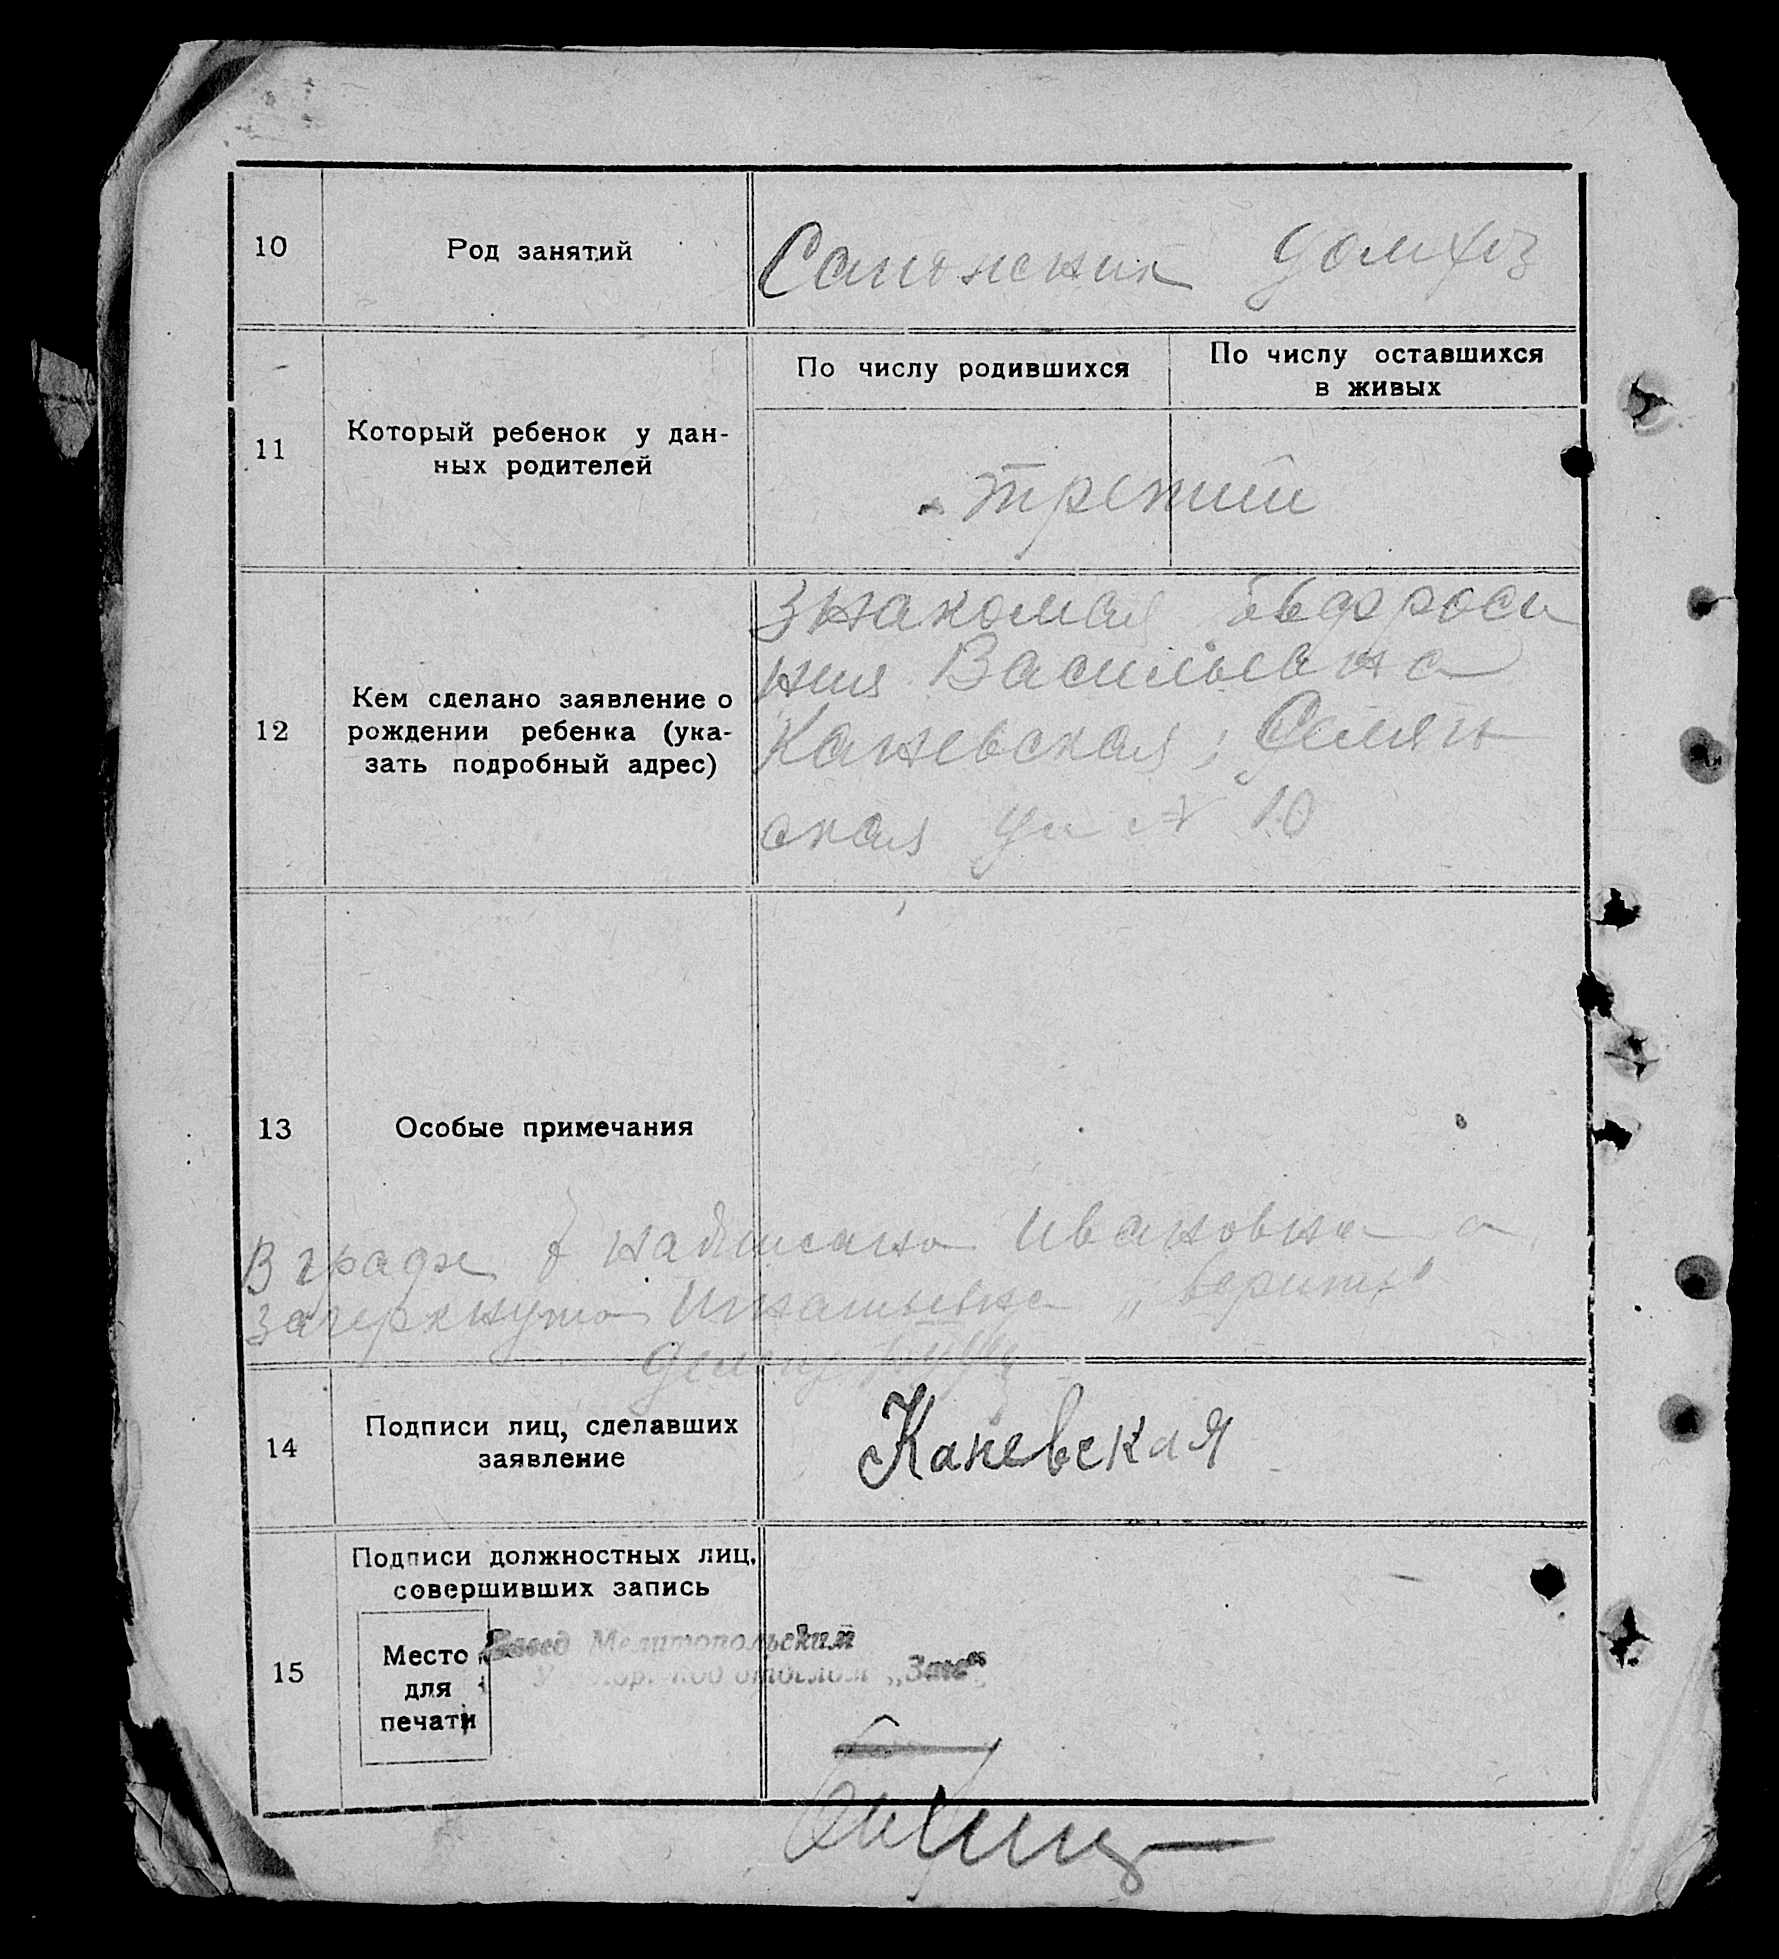 10
Род занятий
Сапожник домхоз
11
Который ребенок у дан-
ных родителей
По числу родившихся
По числу оставшихся
в живых
третий
12
Кем сделано заявление о
рождении ребенка (ука-
зать подробный адрес)
знакомая Евфроси
ния Васильевна
Каневская,
ская ул № 10
13
Особые примечания
В графе надписано Ивановна а
зачеркнуто Игнатьевна „верить"
14
Подписи лиц, сделавших
заявление
Каневская
15
Подписи должностных лиц,
совершивших запись
Место
для
печати
Мелитопольским
„Загс"